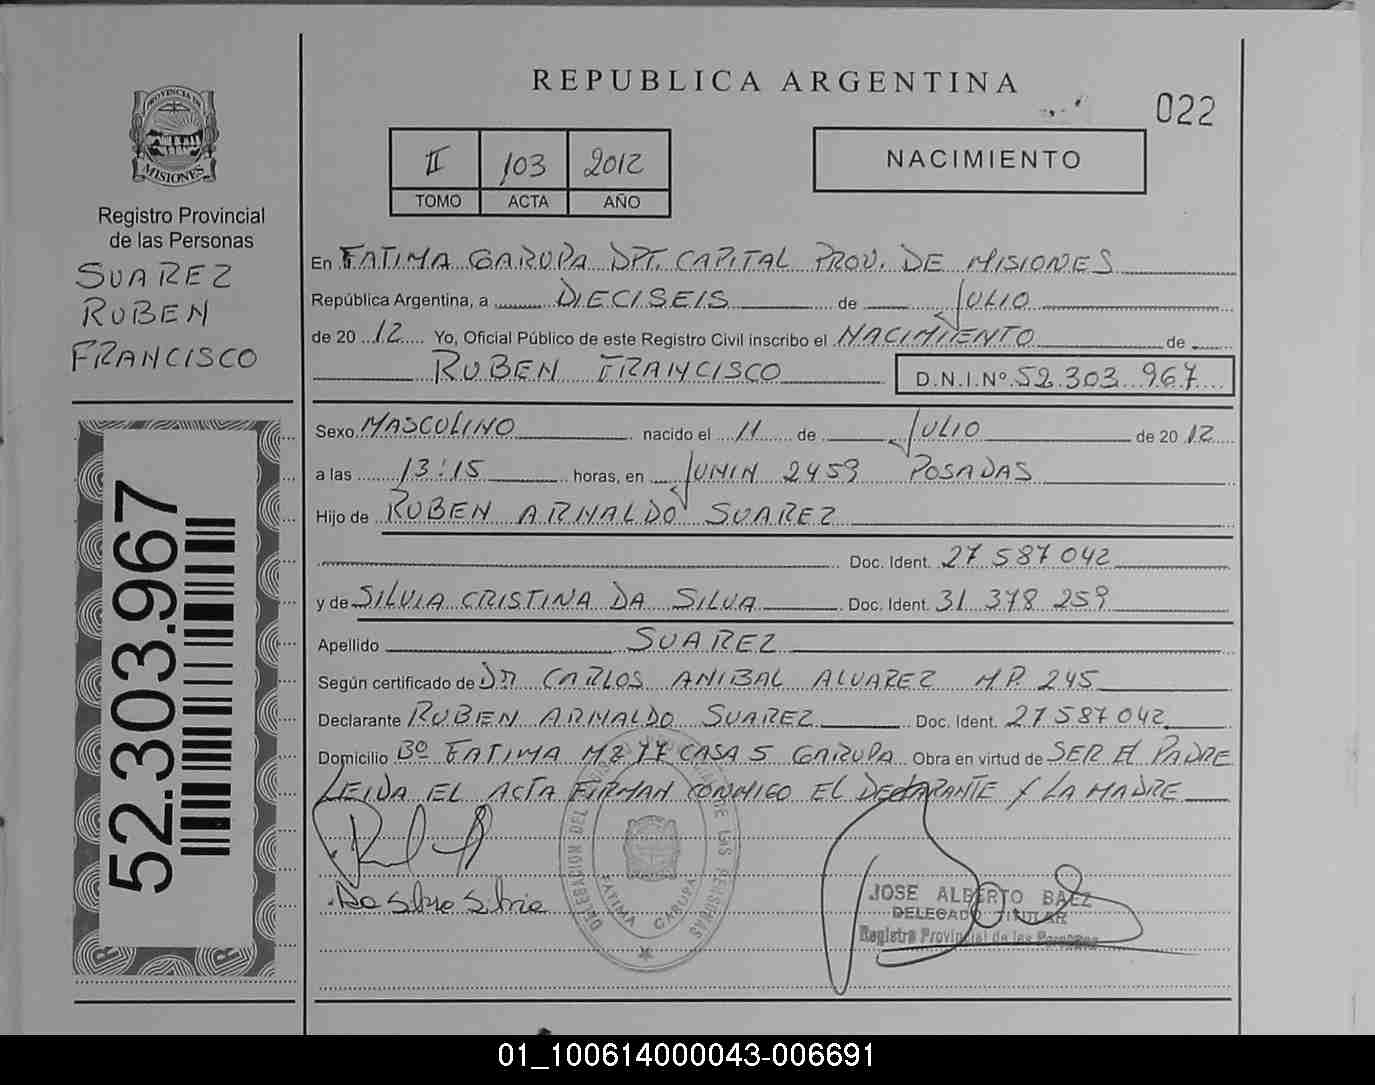 REPUBLICA ARGENTINA
022
PROVINCIA DE
MISIONES
Registro Provincial
de las Personas
SUAREZ
RUBEN
FRANCISCO
52.303.967
II 103 2012
TOMO ACTA AÑO
NACIMIENTO
En FATIMA GARUPA DPT. CAPITAL PROV. DE MISIONES
República Argentina, a DIECISEIS de JULIO
de 20 12 Yo, Oficial Público de este Registro Civil inscribo el NACIMIENTO de
RUBEN FRANCISCO D.N.I.Nº 52.303.967
Sexo MASCULINO nacido el 11 de JULIO de 20 12
a las 13:15 horas, en JUNIN 2459 POSADAS
Hijo de RUBEN ARNALDO SUAREZ
Doc. Ident. 27 587 042
y de SILVIA CRISTINA DA SILVA Doc. Ident. 31 378 259
Apellido SUAREZ
Según certificado de DR CARLOS ANIBAL ALVAREZ M.P. 245
Declarante RUBEN ARNALDO SUAREZ Doc. Ident. 27 587 042
Domicilio Bº FATIMA MZ 77 CASA 5 GARUPA Obra en virtud de SER EL PADRE
LEIDA EL ACTA FIRMAN CONMIGO EL DECLARANTE Y LA MADRE
Da Silva Silvia
DELEGACION DEL REGISTRO PROVINCIAL DE LAS PERSONAS
FATIMA GARUPA
JOSE ALBERTO BAEZ
DELEGADO TITULAR
Registro Provincial de las Personas
01_100614000043-006691